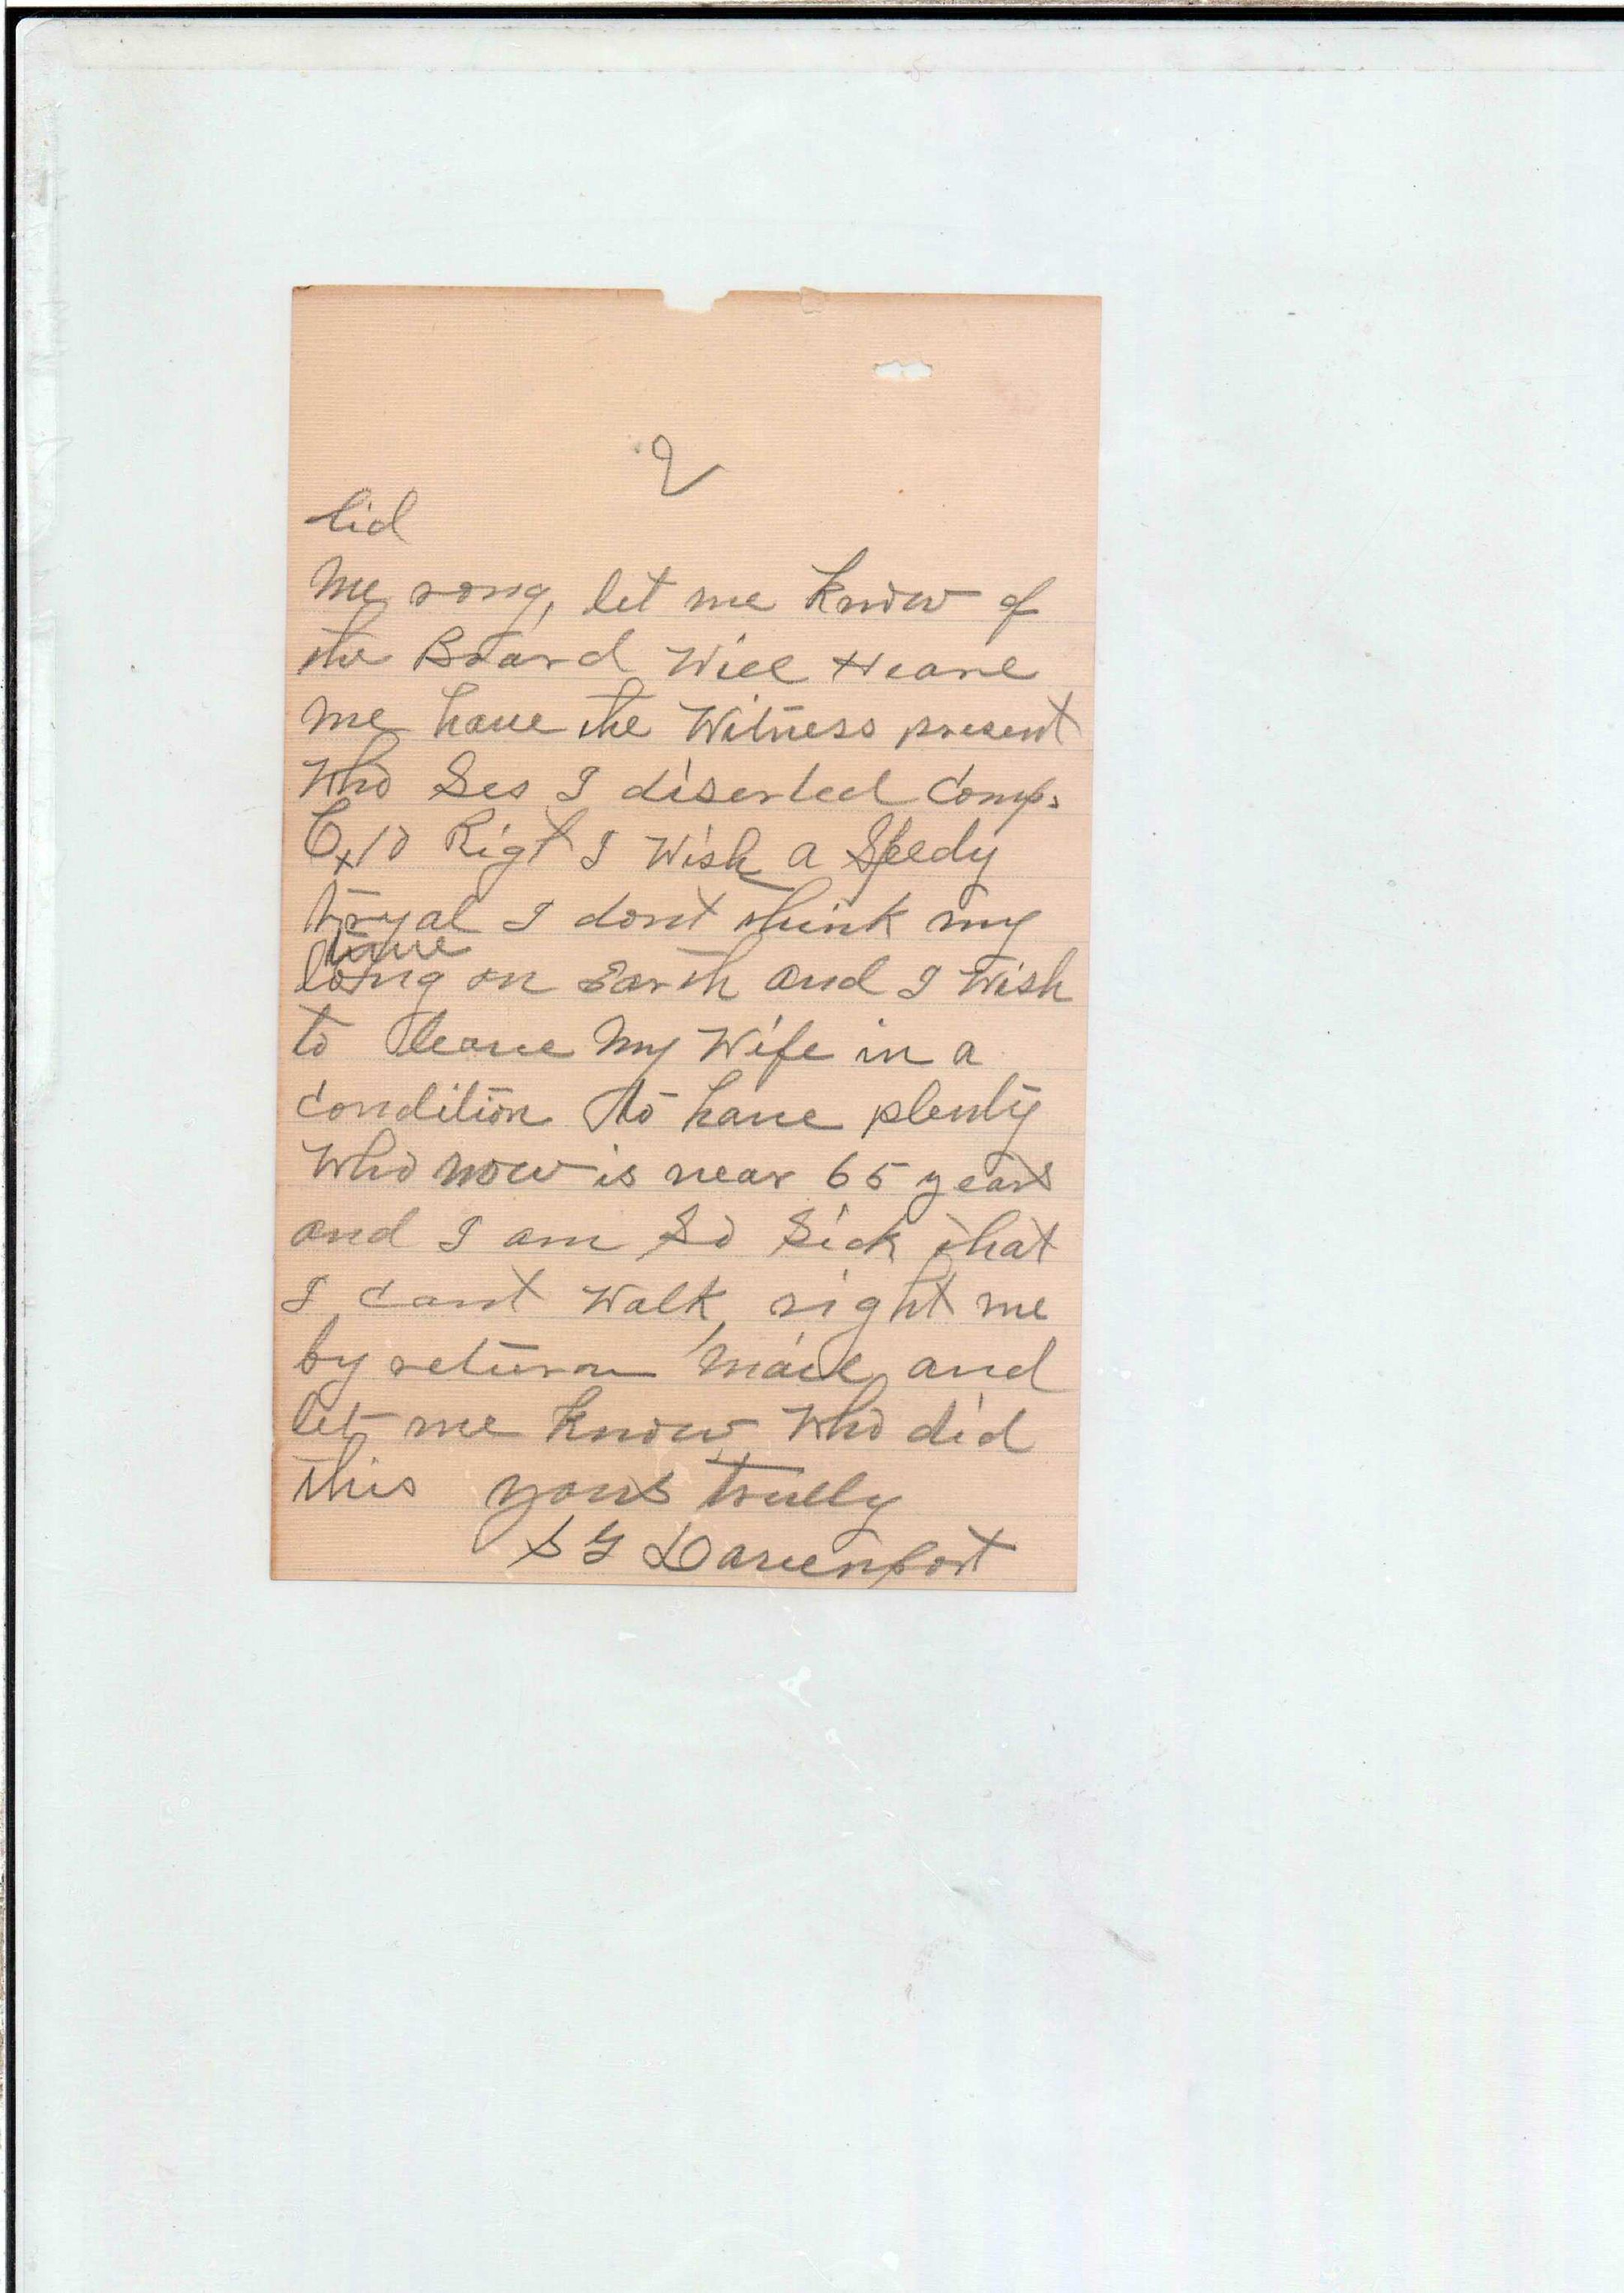 2
lid
me rong, let me know of
the Board Will Heare
me have the Witness present
Who Ses I diserted Comp.
Rigt I Wish a Speedy
tryal I dont think my
time
long on Earth and I Wish
to leave My Wife in a
condition to have plenty
Who now is near 65 years
and I am So Sick that
I cant Walk, right me
by return mail and
let me know Who did
this yours trully
S G Davenport